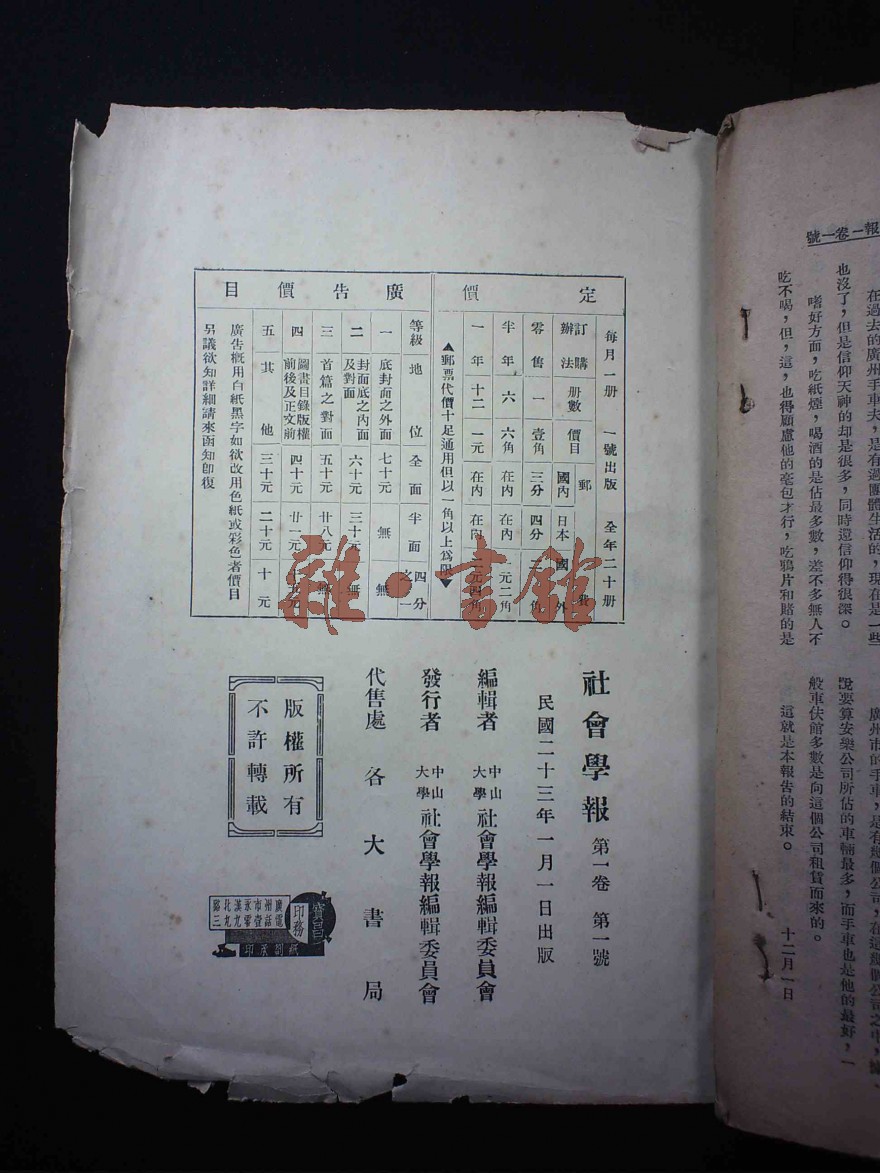 報一卷一號
也沒了，但是信仰天神的却是很多，同時還信仰得很深。
嗜好方面，吃紙煙，喝酒的是佔最多數，差不多無人不
吃不喝，但，這，也得顧慮他的荷包才行，吃鴉片和賭的是
般車伕館多數是向這個公司租賃而來的。
這就是本報告的結束。
十二月一日
定價
每月一册 一號出版 全年二十册
訂購辦法 册數 價目 郵費
國內 日本 國外
零售 一 壹角 三分 四分
半年 六 六角 在內 在內 一元二角
一年 十二 一元 在內 在內
▲郵票代價十足通用但以一角以上爲限▼
廣告價目
等級 地位 全面 半面 四分之一
一 底封面之外面 七十元 無 無
二 封面底之內面及對面 六十元 三十元 無
三 首篇之對面 五十元 廿八元 無
四 圖畫目錄版權前後及正文前 四十元 廿一元
五 其他 三十元 二十元 十元
廣告概用白紙黑字如欲改用色紙或彩色者價目
另議欲知詳細請來函知卽復
社會學報 第一卷 第一號
民國二十三年一月一日出版
編輯者 中山大學 社會學報編輯委員會
發行者 中山大學 社會學報編輯委員會
代售處 各大書局
版權所有
不許轉載
寶昌
印務
雜·書館